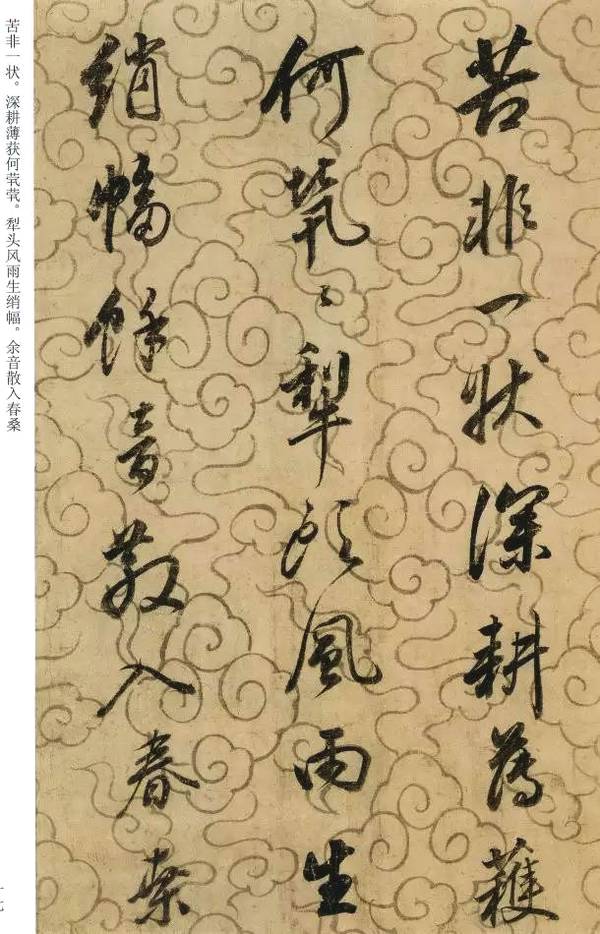 苦非一狀深耕薄穫
何煢〻犂頭風雨生
綃幅餘音散入春桒
苦非一状。深耕薄获何茕茕。犁头风雨生绡幅。余音散入春桑
一七